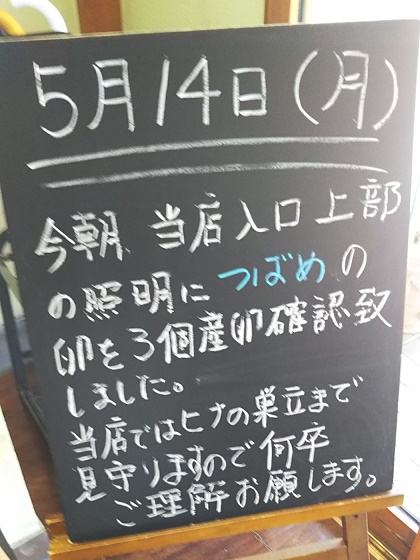 5月14日(月)
今朝 当店入口上部
の照明につばめの
卵を3個産卵確認致
しました。
当店ではヒナの巣立まで
見守りますので何卒
ご理解お願します。